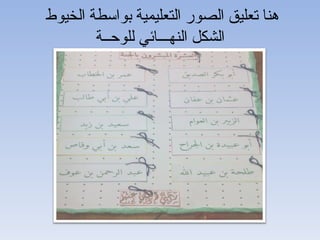 هنا تعليق الصور التعليمية بواسطة الخيوط
الشكل النهـــائي للوحـــة
العشرة المبشرون بالجنة
أبو بكر الصديق
عمر بن الخطاب
عثمان بن عفان
علي بن أبي طالب
الزبير بن العوام
سعيد بن زيد
أبو عبيدة بن الجراح
سعد بن أبي وقاص
طلحة بن عبيد الله
عبد الرحمن بن عوف